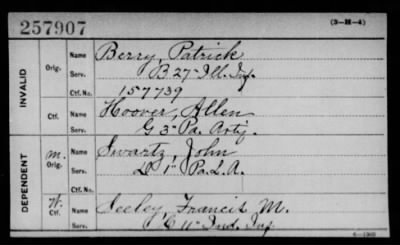 257907
(3—H—4)
INVALID
Orig.
Name Berry, Patrick
Serv. B 27" Ill. Inf.
Ctf. No. 157739
Ctf.
Name Hoover, Allen
Serv. G 3" Pa. Arty.
DEPENDENT
M. Orig.
Name Swartz, John
Serv. D 1" Pa. L. A.
W. Ctf.
Name Seeley, Francis M.
Serv. C 11" Ind. Inf.